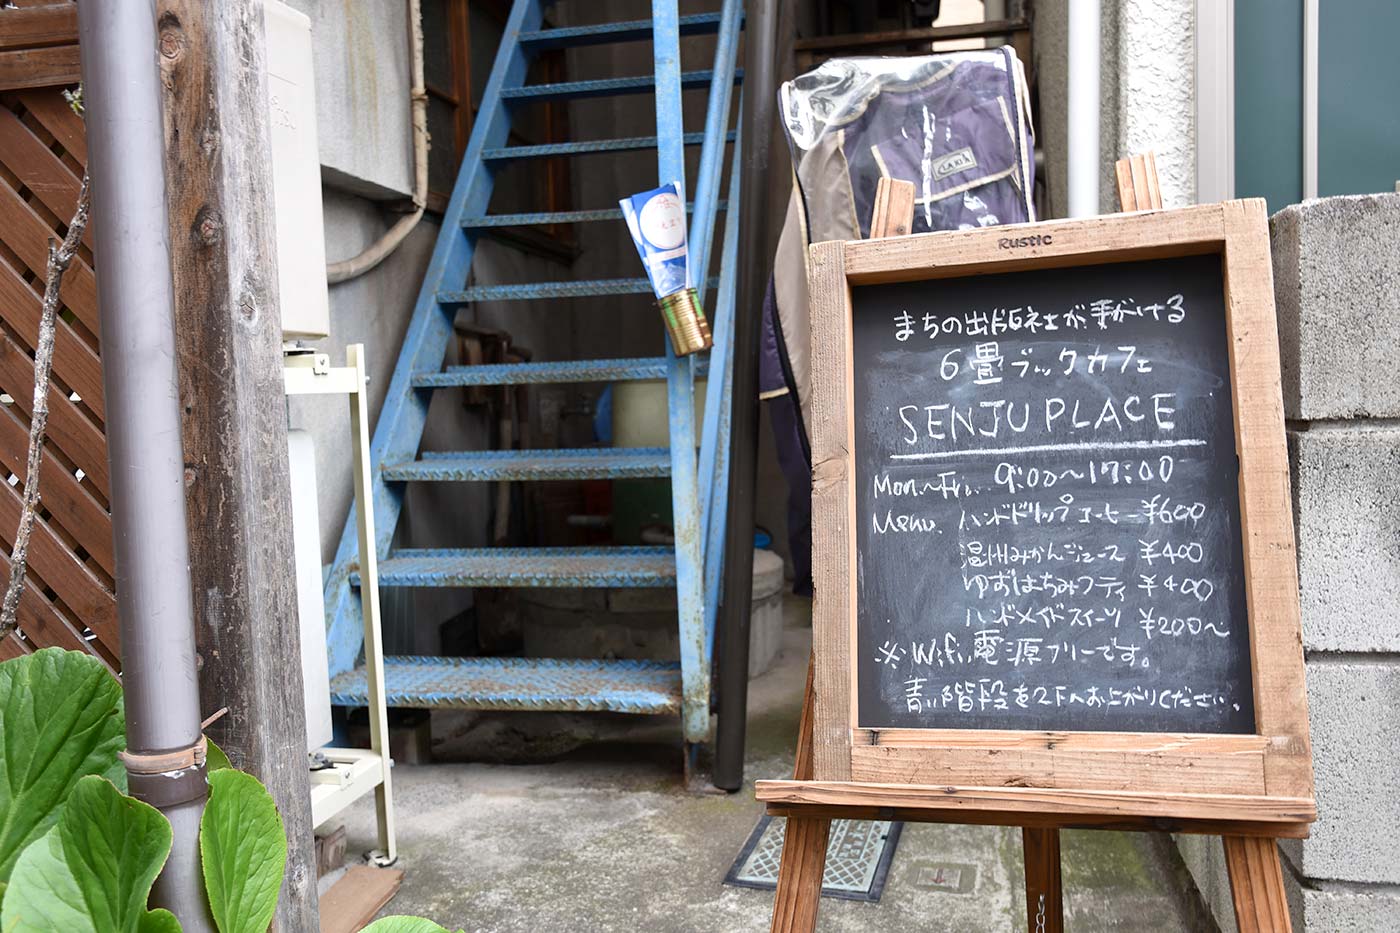 Rustic
まちの出版社が手がける
6畳ブックカフェ
SENJU PLACE
Mon.~Fri. 9:00~17:00
Menu. ハンドドリップコーヒー ¥600
温州みかんジュース ¥400
ゆずはちみつティ ¥400
ハンドメイドスイーツ ¥200~
※Wifi,電源フリーです。
青い階段を2Fへお上がりください。